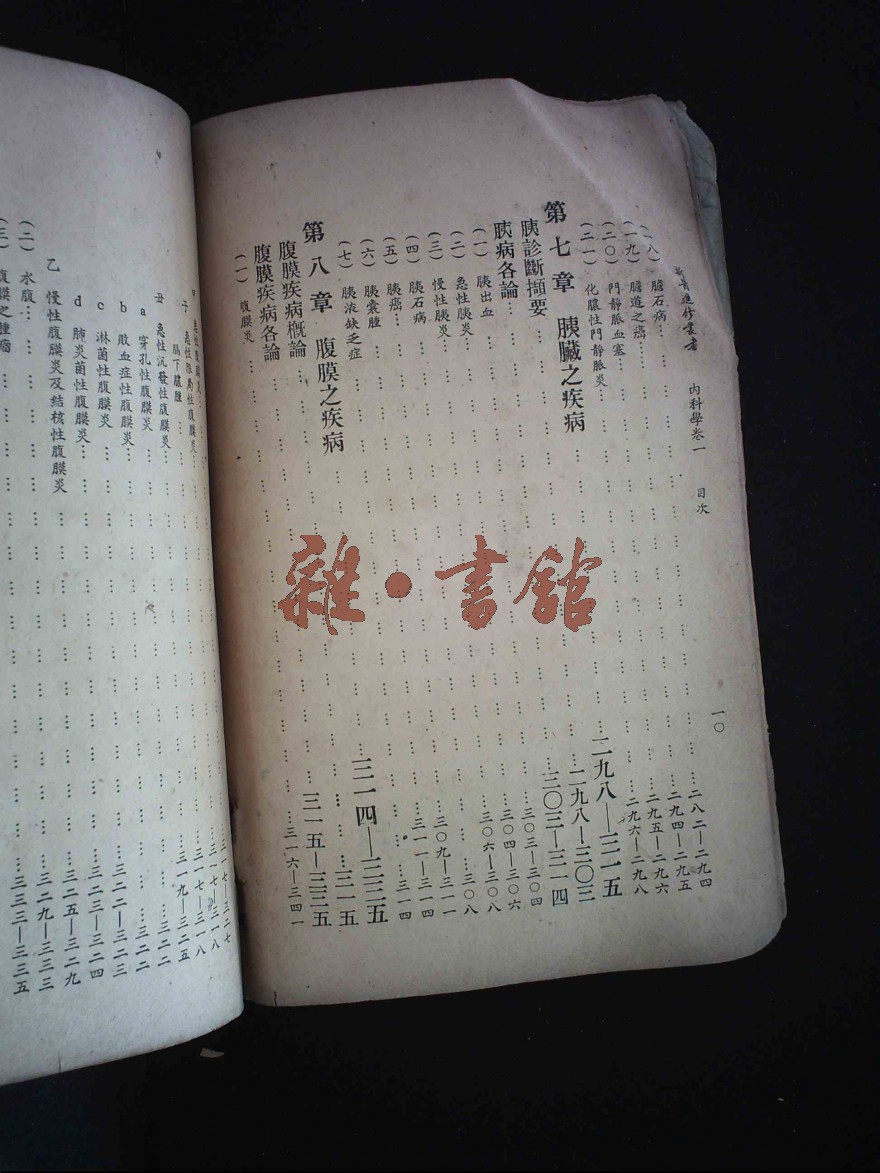 新醫進修叢書 內科學卷一 目次 一〇
(一八) 膽石病……二八二—二九四
(一九) 膽道之癌……二九四—二九五
(二〇) 門靜脈血塞……二九五—二九六
(二一) 化膿性門靜脈炎……二九六—二九八
第七章 胰臟之疾病……二九八—三一五
胰診斷擷要……二九八—三〇三
胰病各論……三〇三—三一四
(一) 胰出血……三〇三—三〇四
(二) 急性胰炎……三〇四—三〇六
(三) 慢性胰炎……三〇六—三〇八
(四) 胰石病……三〇八
(五) 胰癌……三〇九—三一一
(六) 胰囊腫……三一一—三一四
(七) 胰液缺乏症……三一四
第八章 腹膜之疾病……三一四—三三五
腹膜疾病概論……三一五
腹膜疾病各論……三一五—三三五
(一) 腹膜炎……三一六—三四一
甲 急性腹膜炎……三一七—三二七
子 急性限局性腹膜炎……三一七—三一八
膈下膿腫……三一七—三一八
丑 急性汎發性腹膜炎……三一九—三二五
a 穿孔性腹膜炎……三二二
b 敗血症性腹膜炎……三二二
c 淋菌性腹膜炎……三二二—三二三
d 肺炎菌性腹膜炎……三二三—三二四
乙 慢性腹膜炎及結核性腹膜炎……三二五—三二九
(二) 水腹……三二九—三三三
(三) 腹膜之腫瘍……三三三—三三五
雜·書館